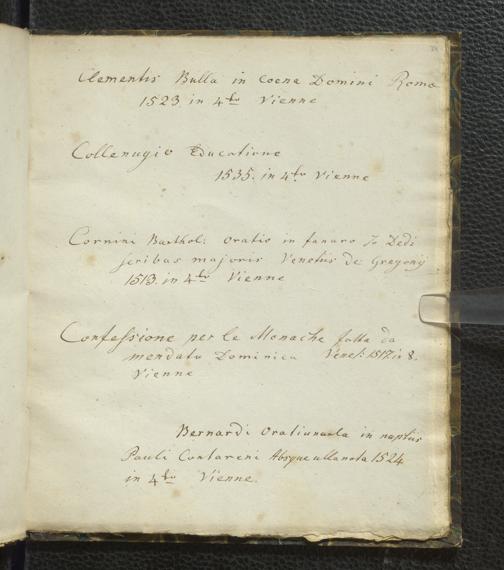 Clementis Bulla in Coena Domini Roma
1523. in 4to Vienne
Collenugio Educatione
1535. in 4to Vienne
Cornini Barthol: Oratio in funere Jo Dedi
scribas majoris Venetiis de Gregorij
1513. in 4to Vienne
Confessione per le Monache fatta da
mendatu Dominica Venet: 1517. in 8.
Vienne
Bernardi Oratiuncula in nuptiis
Pauli Contareni Absque ulla nota 1524
in 4to Vienne.